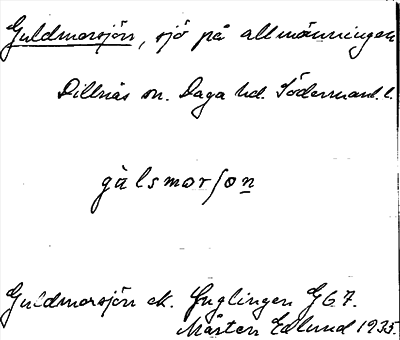 Guldmorsjön, sjö på allmänningen
Dillnäs sn. Daga hd. Söderman. l.
gùlsmorſon
Guldmorsjön ek. Ynglingen G 67.
Mårten Edlund 1935.